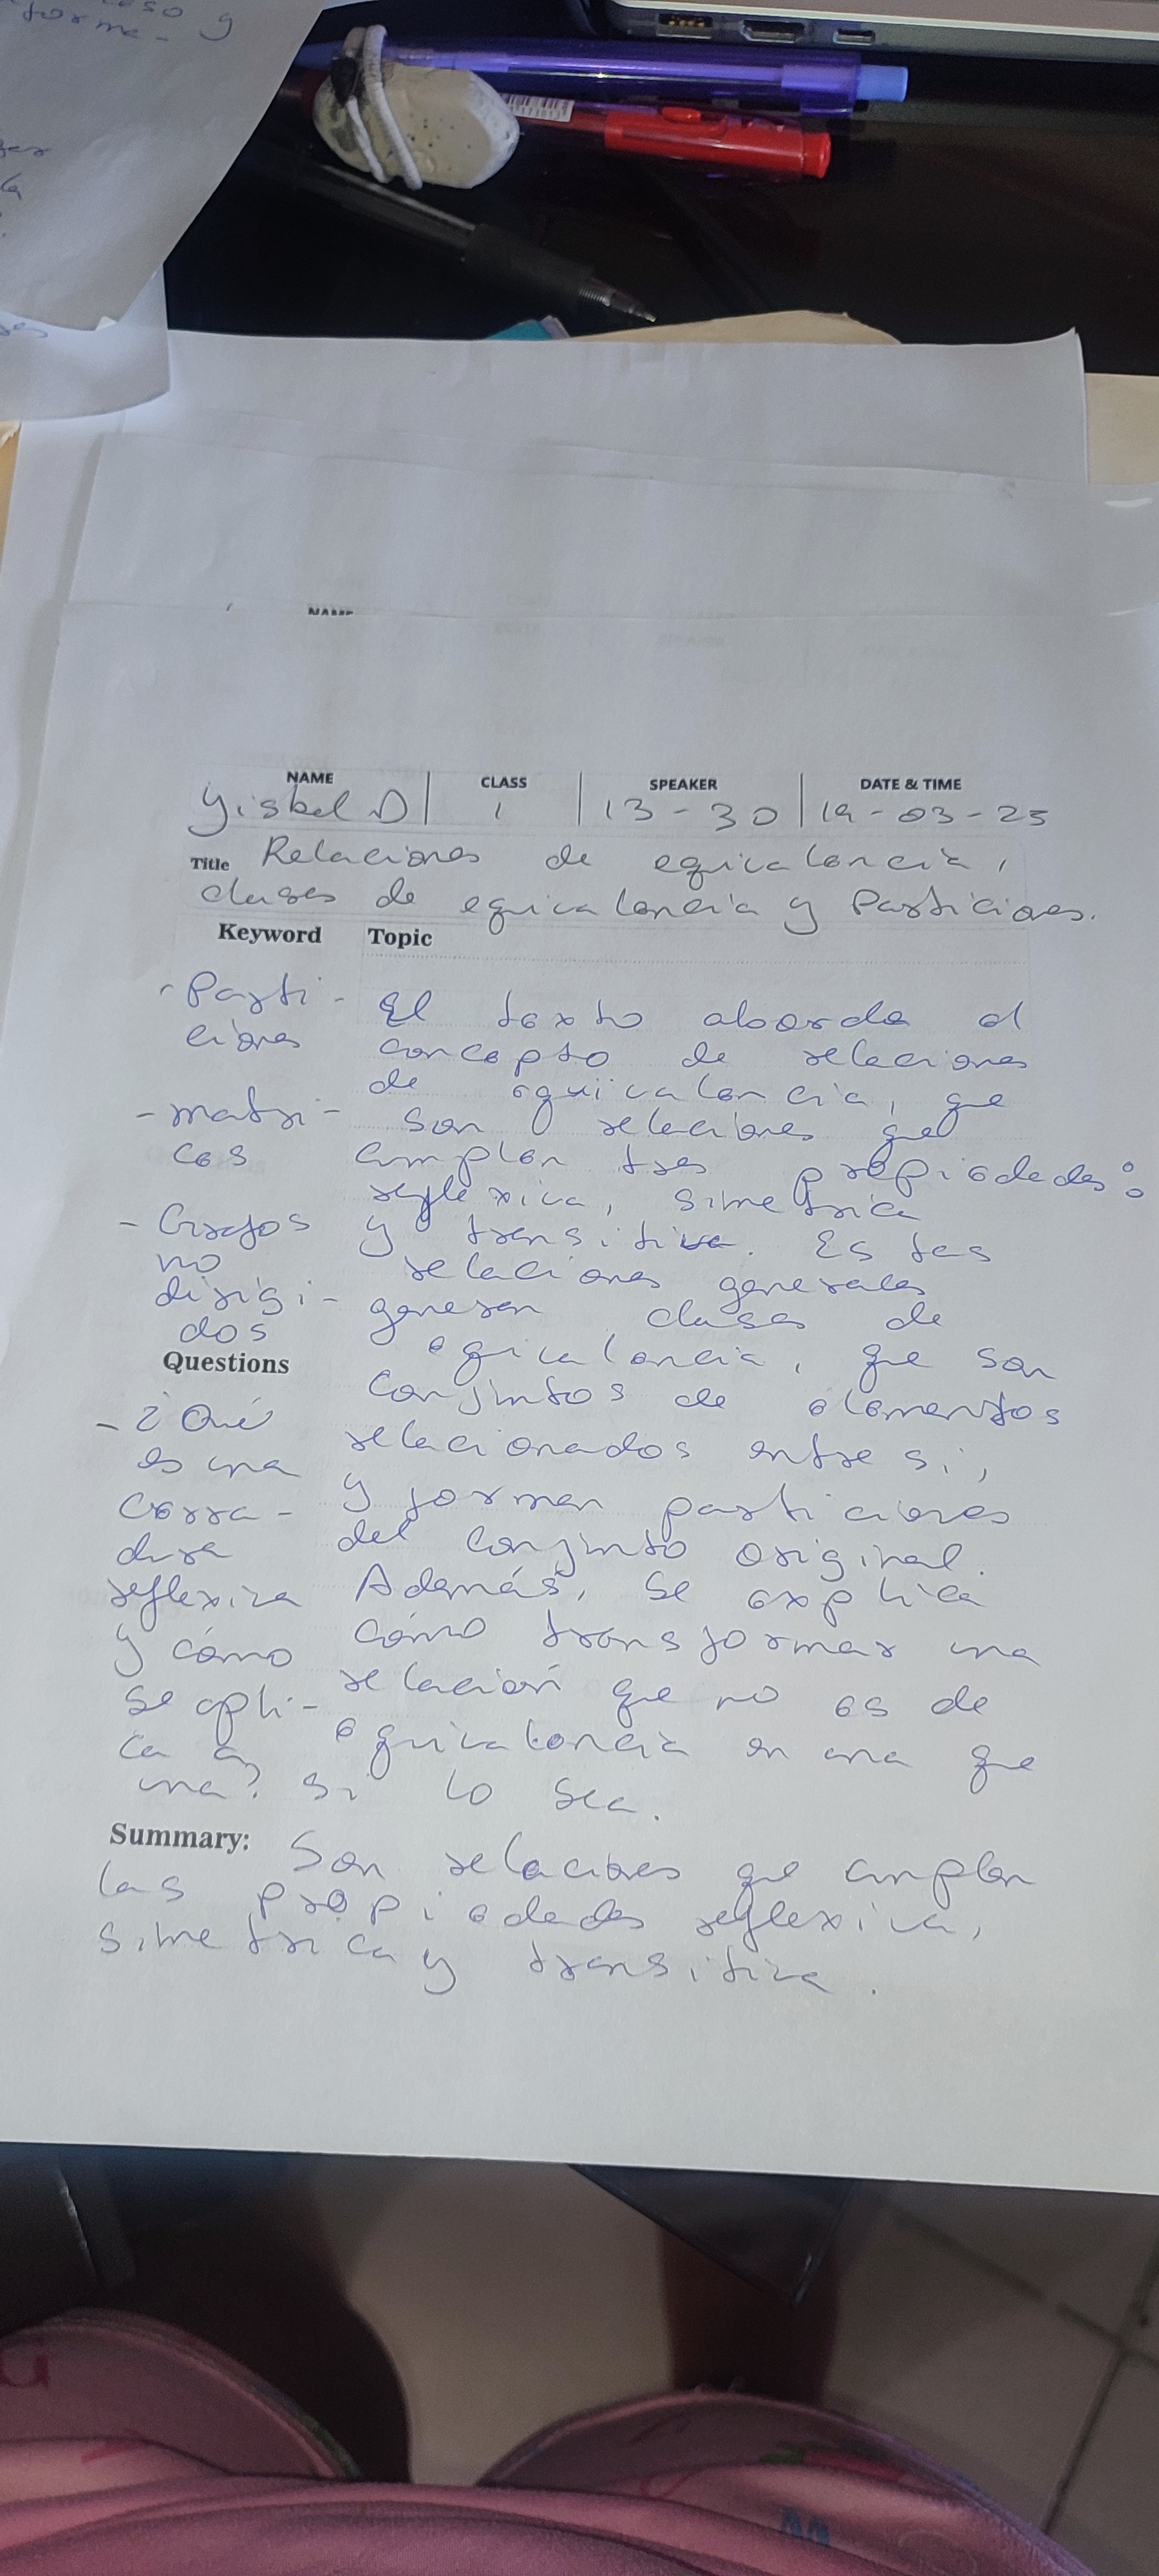 forme-
NAME
NAME CLASS SPEAKER DATE & TIME
Yisbel D 1 13-30 19-03-25
Title Relaciones de equivalencia,
clases de equivalencia y Particiones.
Keyword Topic
- Parti-
ciones
- matri-
ces
- Grafos
no
dirigi-
dos
El texto aborda el
concepto de relaciones
de equivalencia, que
son relaciones que
cumplen tres propiedades:
reflexiva, simétrica
y transitiva. Estas
relaciones generales
generan clases de
equivalencia, que son
conjuntos de elementos
relacionados entre sí,
y forman particiones
del conjunto original.
Además, se explica
cómo transformar una
relación que no es de
equivalencia en una que
si lo sea.
Questions
- ¿Qué
es una
cerra-
dura
reflexiva
y cómo
se apli-
ca a
una?
Summary: Son relaciones que cumplen
las propiedades reflexiva,
simetrica y transitiva.